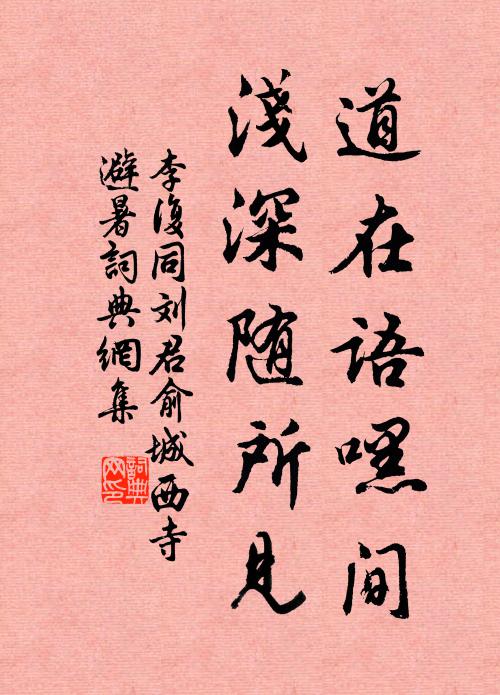 道在語嘿间
淺深随所見
李復同刘君俞城西寺
避暑詞典網集
詞典网印